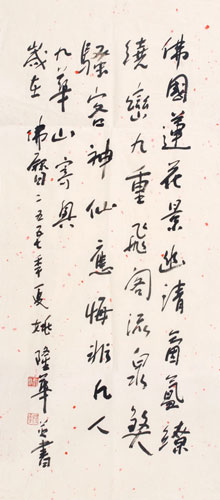 佛國蓮花景幽清氤氳繚
繞巒九重飛閣流泉笑
騷客神仙應悔雅凡人
九華山寄興
歲在佛曆二五五七年夏姚隆華並書